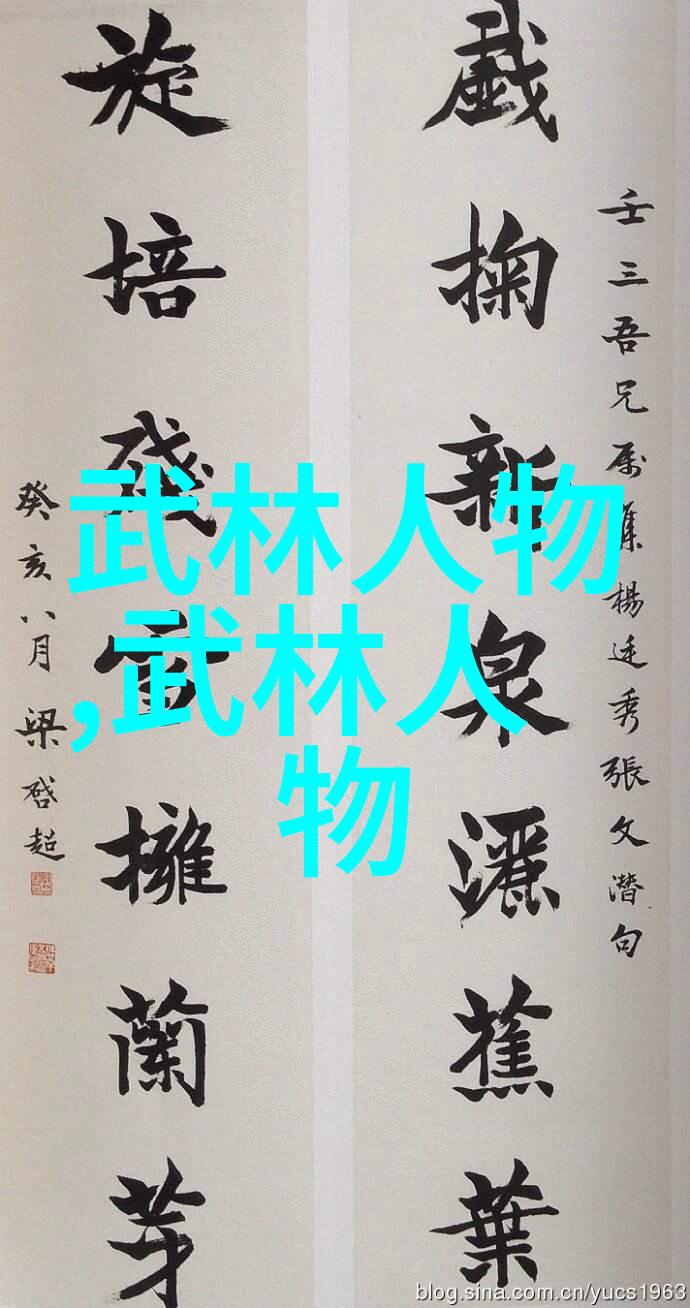 壬三吾兄属集楊廷秀張文潛句
戲掬新泉灑蕉葉
旋培殘雪擁蘭芽
癸亥八月梁啓超
武林人物
,武林人
物
blog.sina.com.cn/yucs1963